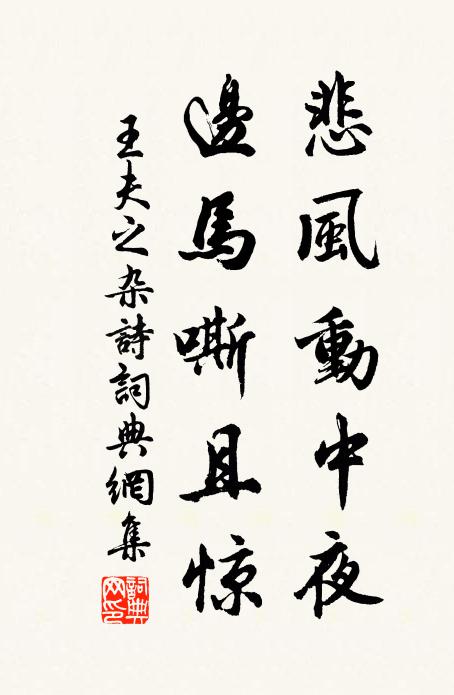 悲風動中夜
邊馬嘶且惊
王夫之杂詩詞典網集
詞典
网印